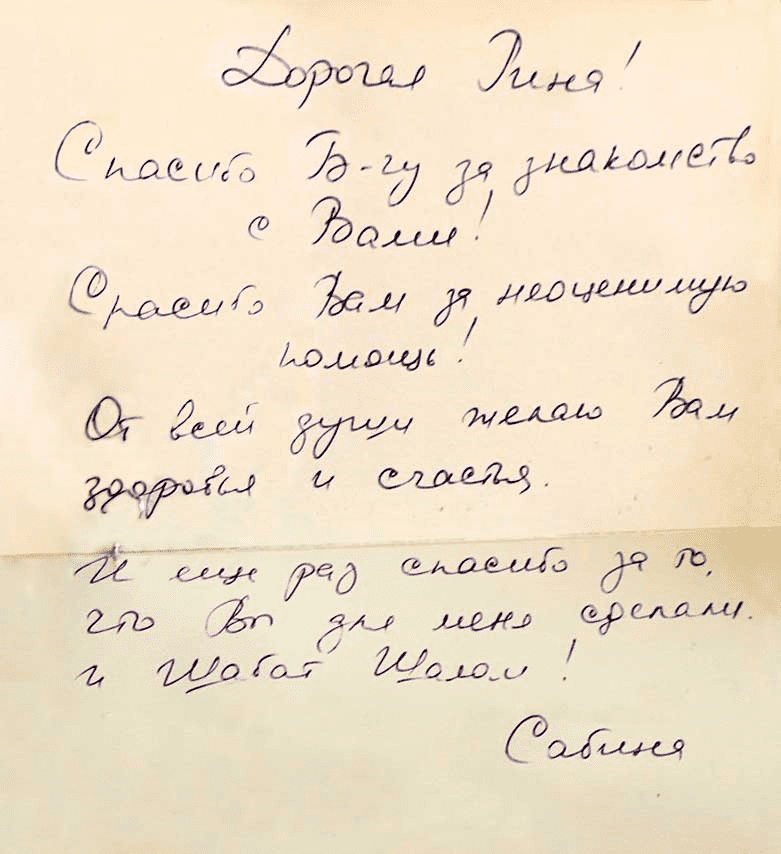 Дорогая Риня!
Спасибо Б-гу за знакомство
с Вами!
Спасибо Вам за неоценимую
помощь!
От всей души желаю Вам
здоровья и счастья.
И еще раз спасибо за то,
что Вы для меня сделали.
и Шабат Шалом!
Сабина